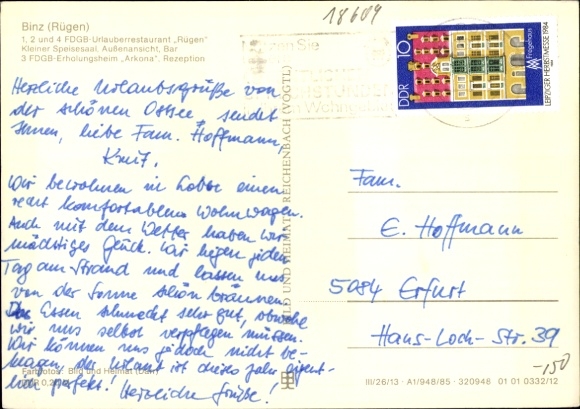 Binz (Rügen)
1, 2 und 4 FDGB-Urlauberrestaurant „Rügen"
Kleiner Speisesaal, Außenansicht, Bar
3 FDGB-Erholungsheim „Arkona", Rezeption
18609
DDR 10
Fregehaus
LEIPZIGER HERBSTMESSE 1984
Herzliche Urlaubsgrüße von
der schönen Ostsee, sendet
Ihnen, liebe Fam. Hoffmann,
Wir bewohnen in Lobbe einen
recht komfortablen Wohnwagen.
Auch mit dem Wetter haben wir
mächtiges Glück. Wir liegen jeden
Tag am Strand und lassen uns
von der Sonne schön bräunen.
Das Essen schmeckt sehr gut, obwohl
wir uns selbst verpflegen müssen.
Wir können uns jedoch nicht be-
klagen, der Urlaub ist dieses Jahr eigent-
lich perfekt! Herzliche Grüße!
Farbfotos: Bild und Heimat
BILD UND HEIMAT REICHENBACH (VOGTL)
Fam.
E. Hoffmann
5084 Erfurt
Hans-Loch-Str. 39
-150
III/26/13 A1/948/85 320946 01 01 0332/12